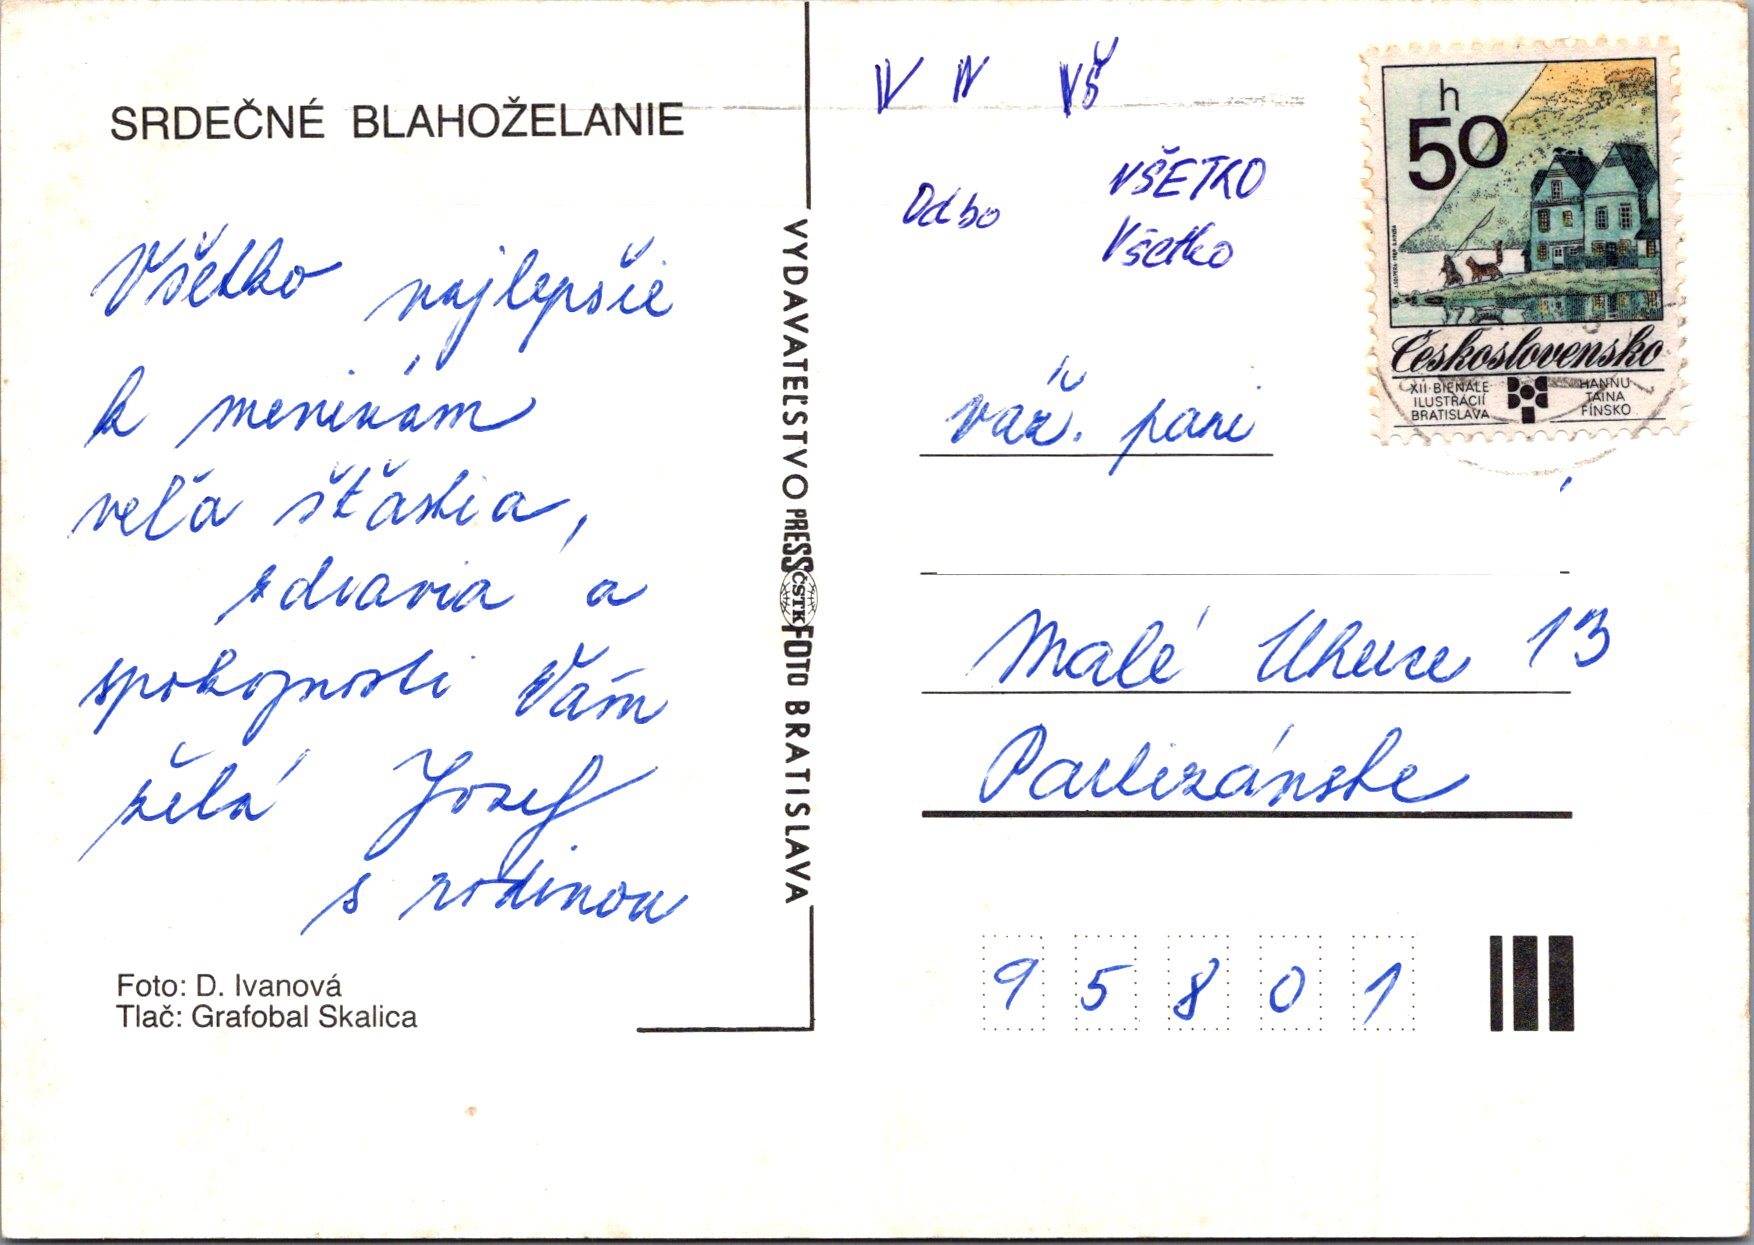 SRDEČNÉ BLAHOŽELANIE
Všetko najlepšie
k meninám
veľa šťastia,
zdravia a
spokojnosti Vám
želá Jozef
s rodinou
Foto: D. Ivanová
Tlač: Grafobal Skalica
VYDAVATEĽSTVO PRESSFOTO BRATISLAVA
ČSTK
V N VŠ
VŠETKO
Odbo
Všetko
h
50
Československo
XII. BIENÁLE
ILUSTRÁCIÍ
BRATISLAVA
HANNU
TAINA
FÍNSKO
váž. pani
Malé Uherce 13
Partizánske
95801